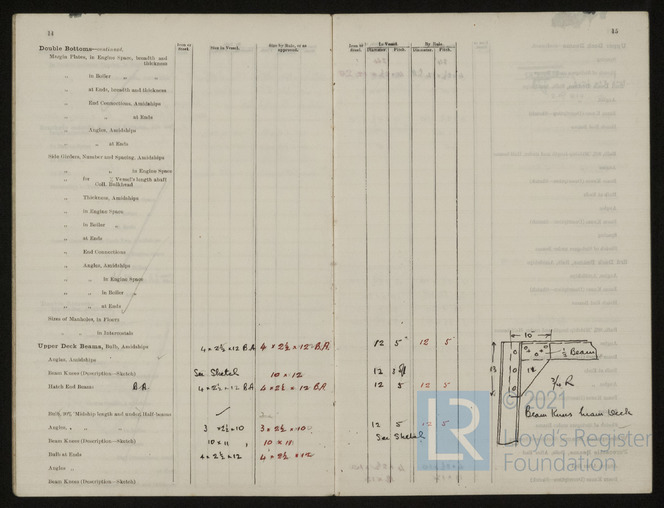 14
Double Bottoms—continued.
Iron or Steel.
Size in Vessel.
Size by Rule, or as approved.
Margin Plates, in Engine Space, breadth and thickness
„ in Boiler „ „
„ at Ends, breadth and thickness
„ End Connections, Amidships
„ „ at Ends
„ Angles, Amidships
„ „ at Ends
Side Girders, Number and Spacing, Amidships
„ „ in Engine Space
„ for Vessel's length abaft Coll. Bulkhead
„ Thickness, Amidships
„ in Engine Space
„ in Boiler „
„ at Ends
„ End Connections
„ Angles, Amidships
„ „ in Engine Space
„ „ in Boiler „
„ „ at Ends
Sizes of Manholes, in Floors
„ „ in Intercostals
Upper Deck Beams, Bulb, Amidships 4 × 2½ × 12 B.A 4 × 2½ × 12 B.A.
Angles, Amidships
Beam Knees (Description—Sketch) See Sketch 10 × 12
Hatch End Beams B.A. 4 × 2½ × 12 B.A 4 × 2½ × 12 B.A
Bulb, 50% 'Midship length and under, Half-beams
Angles, „ „ 3 × 2½ × 10 3 × 2½ × 10
Beam Knees (Description—Sketch) 10 × 11 10 × 11
Bulb at Ends 4 × 2½ × 12 4 × 2½ × 12
Angles „
Beam Knees (Description—Sketch)
15
Iron or Steel.
In Vessel.
By Rule.
Diameter. Pitch. Diameter. Pitch.
12 5 12 5
12
12 5 12 5
12 5 12 5
See Sketch
10
½ Beam
13
12
Beam Knees main Deck
© 2021
LR
Lloyd's Register
Foundation